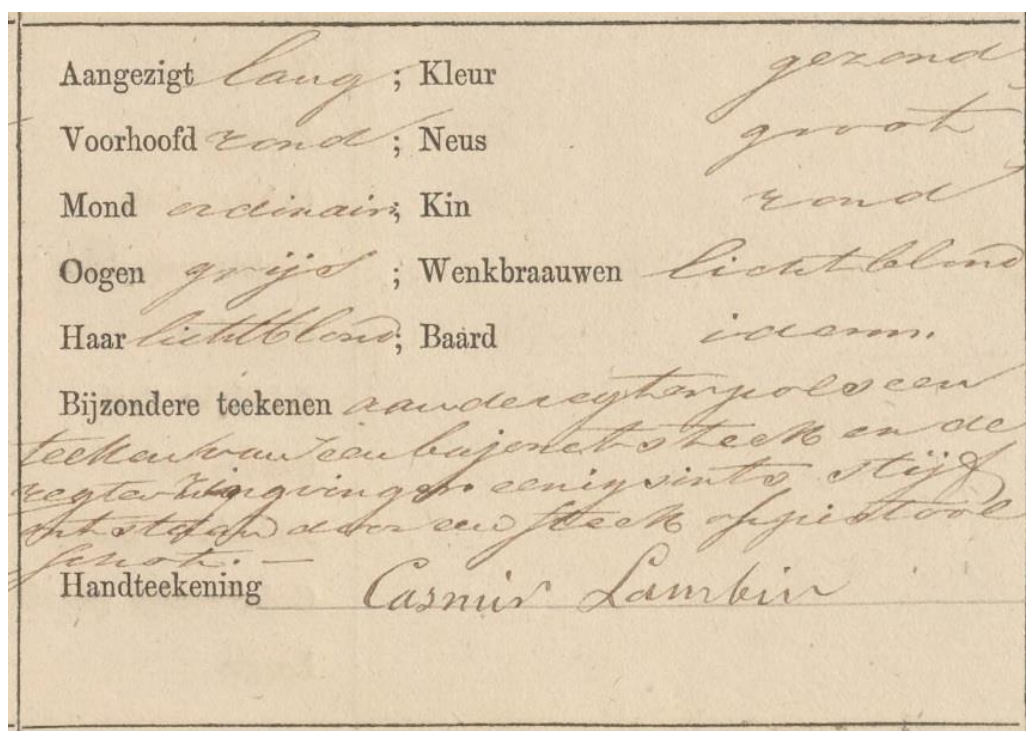 Aangezigt lang ; Kleur gezond
Voorhoofd rond ; Neus groot
Mond ordinair ; Kin rond
Oogen grijs ; Wenkbraauwen lichtblond
Haar lichtblond ; Baard idem.
Bijzondere teekenen aan de regterpols een
teeken van een bajonetsteek en de
regter ringvinger eenigsints stijf
ontstaan door een steek of pistool
schot. —
Handteekening Casmir Lambin